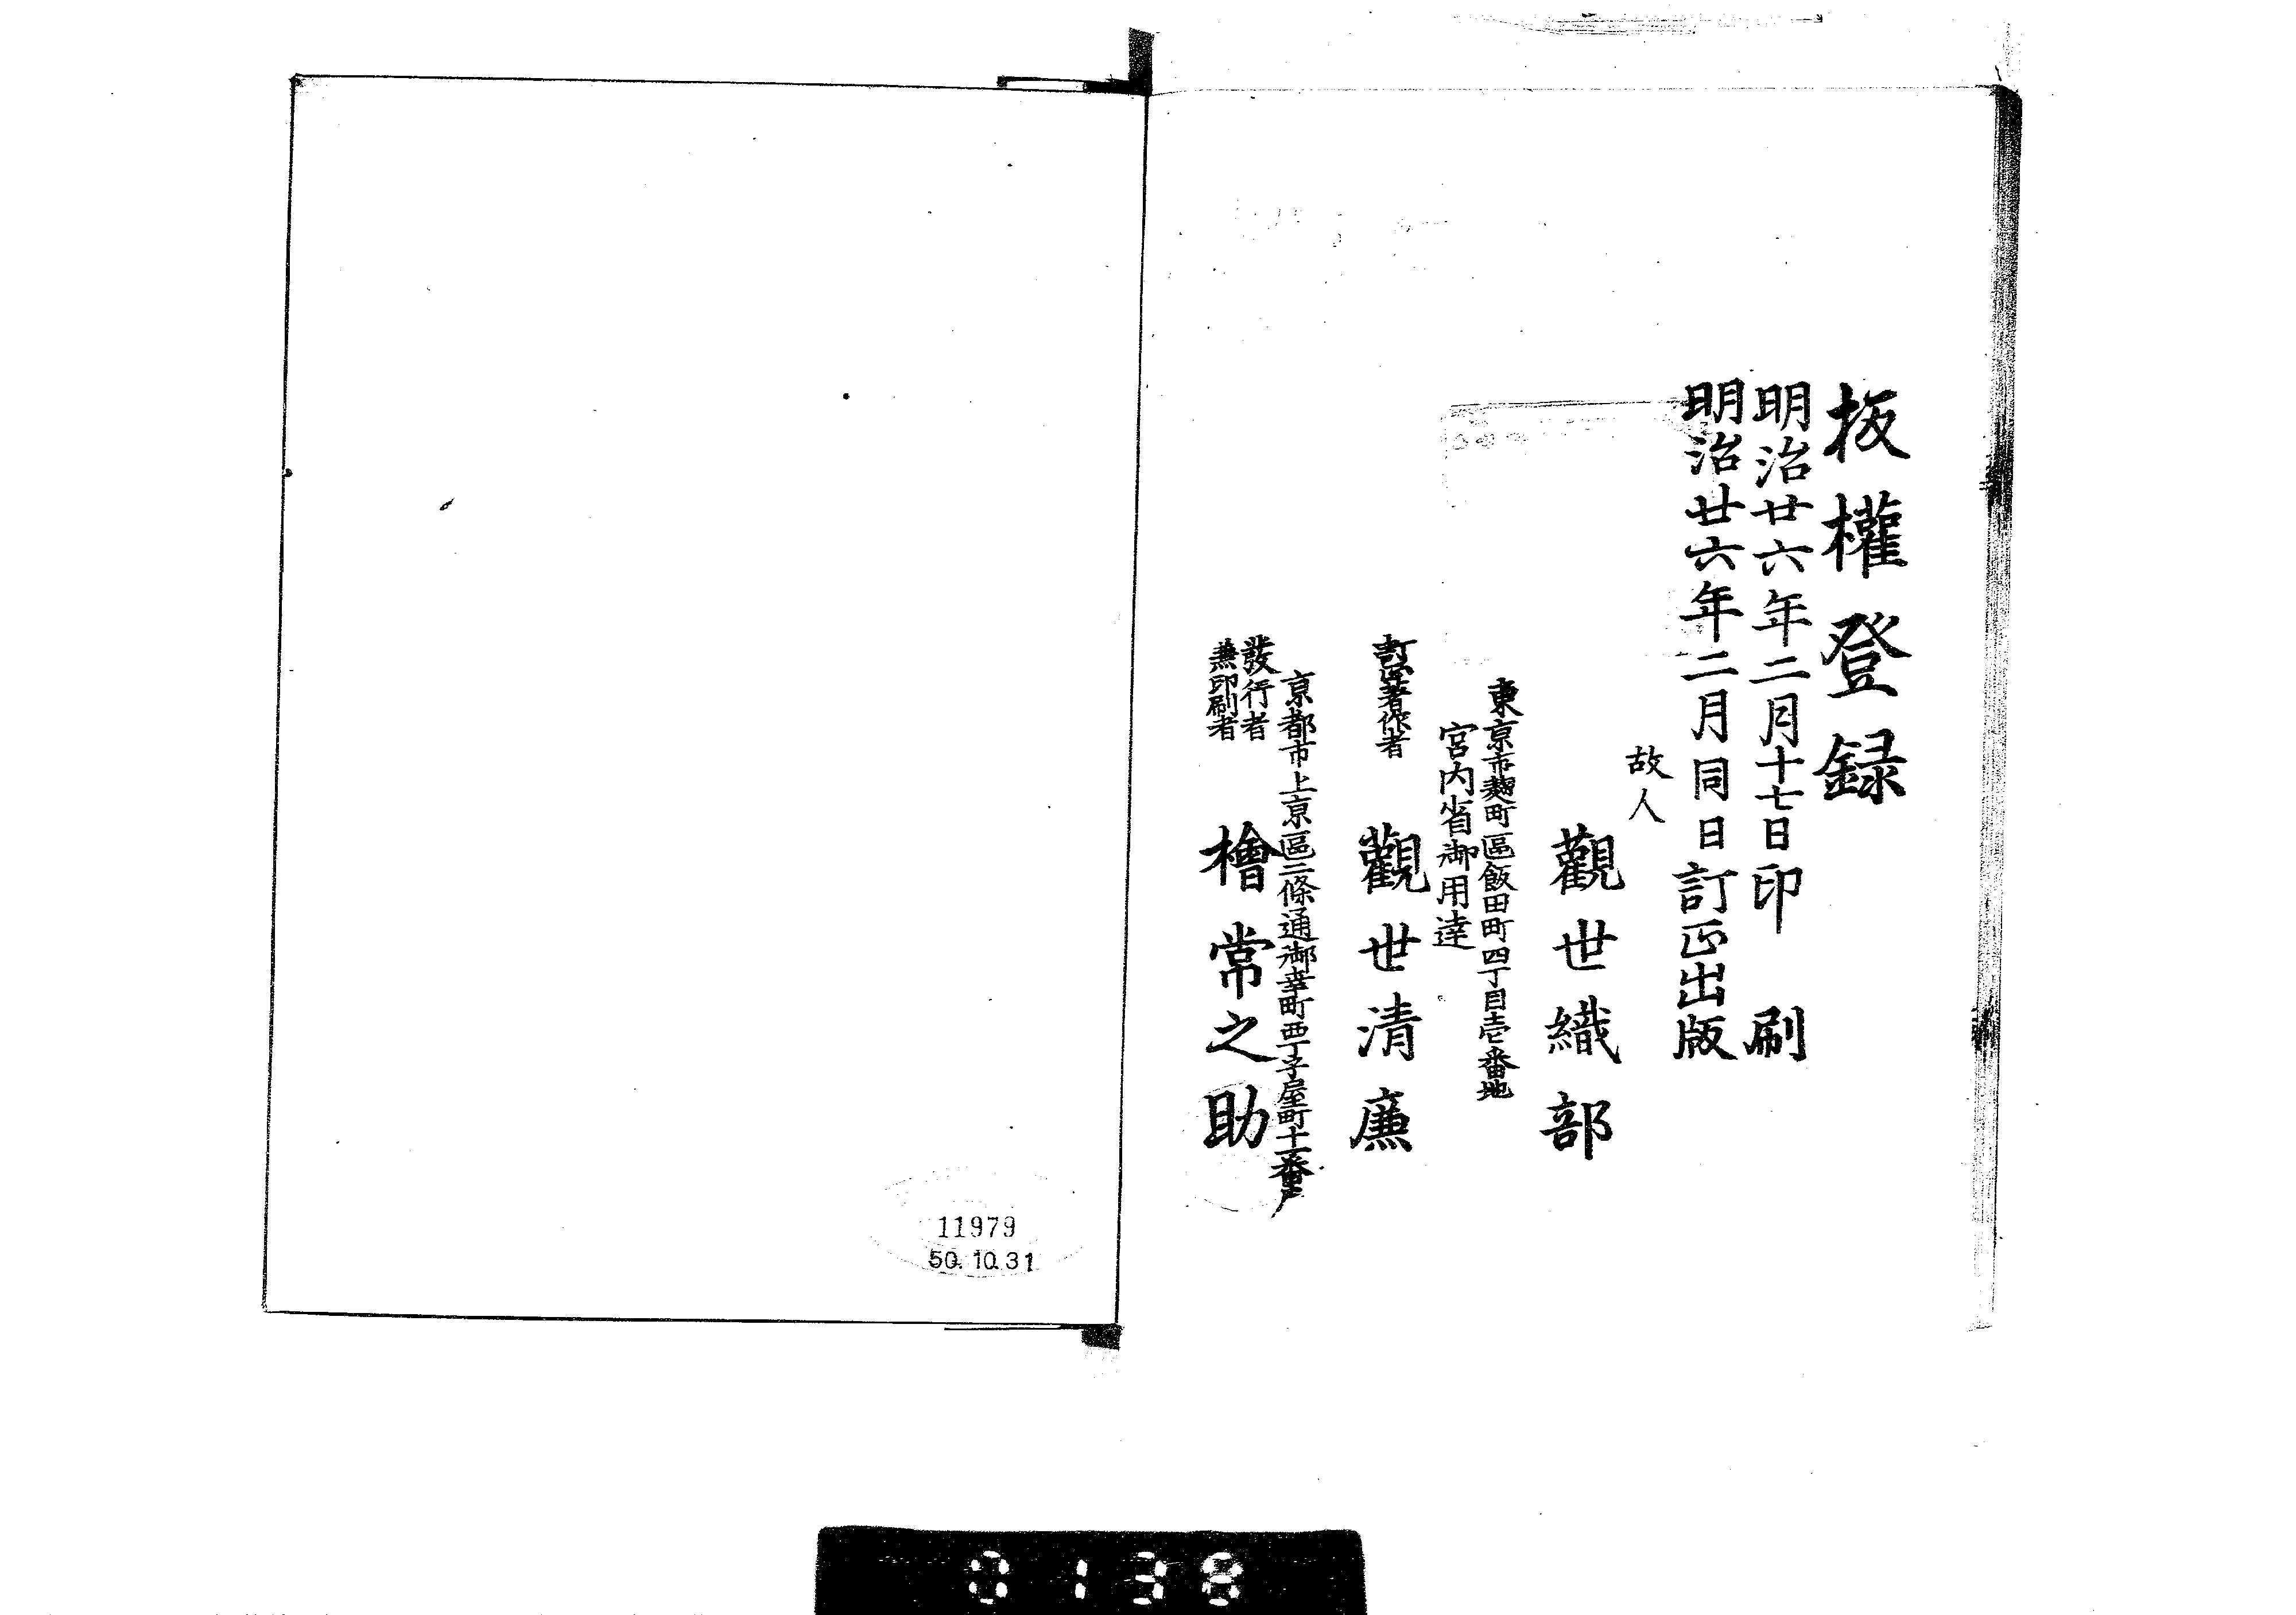 板權登録
明治廿六年二月十七日印刷
明治廿六年二月同日訂正出版
故人
觀世織部
東京市麹町區飯田町四丁目壱番地
宮内省御用達
訂正著作者
觀世清廉
京都市上京區二條通御幸町西丁子屋町十一番戸
發行者
兼印刷者
檜常之助
11979
50.10.31
0138